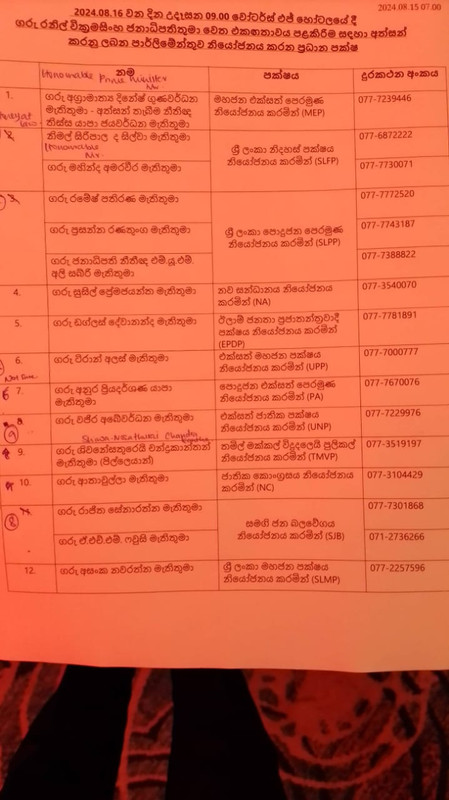 2024.08.15 07.00
2024.08.16 වන දින උදෑසන 09.00 වෝටර්ස් එජ් හෝටලයේ දී
ගරු රනිල් වික්‍රමසිංහ ජනාධිපතිතුමා වෙත එකඟතාවය පළකිරීම සඳහා අත්සන්
කරනු ලබන පාර්ලිමේන්තුව නියෝජනය කරන ප්‍රධාන පක්ෂ
නම
පක්ෂය
දුරකථන අංකය
Honourable Prime Minister
Mr.
1.
ගරු අග්‍රාමාත්‍ය දිනේෂ් ගුණවර්ධන
මැතිතුමා - අත්සන් තැබීම නීතීඥ
තිස්ස යාපා ජයවර්ධන මැතිතුමා
මහජන එක්සත් පෙරමුණ
නියෝජනය කරමින් (MEP)
077-7239446
නිමල් සිරිපාල ද සිල්වා මැතිතුමා
Honourable
Mr.
ගරු මහින්ද අමරවීර මැතිතුමා
ශ්‍රී ලංකා නිදහස් පක්ෂය
නියෝජනය කරමින් (SLFP)
077-6872222
077-7730071
3.
ගරු රමේෂ් පතිරණ මැතිතුමා
ගරු ප්‍රසන්න රණතුංග මැතිතුමා
ගරු ජනාධිපති නීතීඥ එම්.යූ.එම්.
අලි සබ්රි මැතිතුමා
ශ්‍රී ලංකා පොදුජන පෙරමුණ
නියෝජනය කරමින් (SLPP)
077-7772520
077-7743187
077-7388822
4.
ගරු සුසිල් ප්‍රේමජයන්ත මැතිතුමා
නව සන්ධානය නියෝජනය
කරමින් (NA)
077-3540070
5.
ගරු ඩග්ලස් දේවානන්ද මැතිතුමා
ඊලාම් ජනතා ප්‍රජාතන්ත්‍රවාදී
පක්ෂය නියෝජනය කරමින්
(EPDP)
077-7781891
6.
ගරු ටිරාන් අලස් මැතිතුමා
එක්සත් මහජන පක්ෂය
නියෝජනය කරමින් (UPP)
077-7000777
6 7.
ගරු අනුර ප්‍රියදර්ශණ යාපා
මැතිතුමා
පොදුජන එක්සත් පෙරමුණ
නියෝජනය කරමින් (PA)
077-7670076
8.
9
ගරු වජිර අබේවර්ධන මැතිතුමා
එක්සත් ජාතික පක්ෂය
නියෝජනය කරමින් (UNP)
077-7229976
9.
ගරු ශිවනේසතුරෙයි චන්ද්‍රකාන්තන්
මැතිතුමා (පිල්ලෙයාන්)
තමිල් මක්කල් විදුදලෙයි පුලිකල්
නියෝජනය කරමින් (TMVP)
077-3519197
10.
ගරු ආතාවුල්ලා මැතිතුමා
ජාතික කොංග්‍රසය නියෝජනය
කරමින් (NC)
077-3104429
ගරු රාජිත සේනාරත්න මැතිතුමා
ගරු ඒ.එච්.එම්. ෆවුසි මැතිතුමා
සමගි ජන බලවේගය
නියෝජනය කරමින් (SJB)
077-7301868
071-2736266
12.
ගරු අසංක නවරත්න මැතිතුමා
ශ්‍රී ලංකා මහජන පක්ෂය
නියෝජනය කරමින් (SLMP)
077-2257596